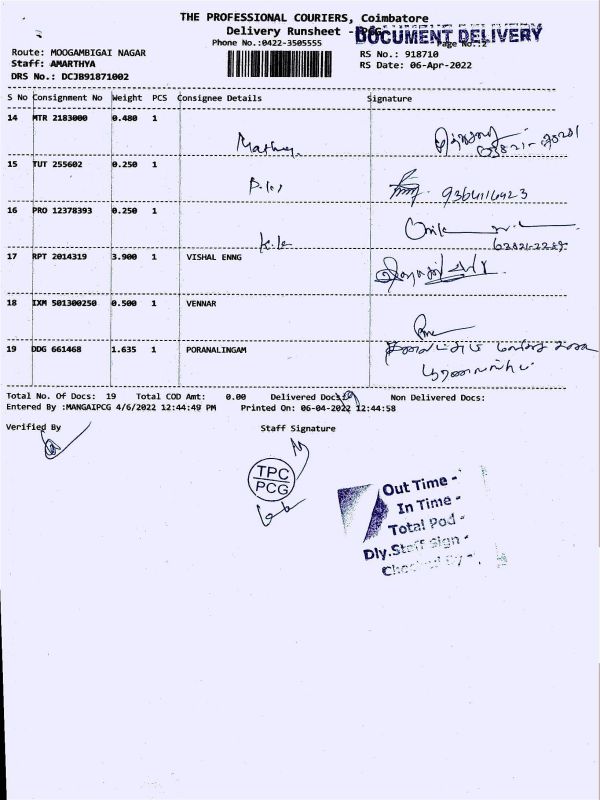 THE PROFESSIONAL COURIERS, Coimbatore
Delivery Runsheet - PCG
DOCUMENT DELIVERY
Phone No.:0422-3505555
Page No.:2
Route: MOOGAMBIGAI NAGAR
RS No.: 918710
Staff: AMARTHYA
RS Date: 06-Apr-2022
DRS No.: DCJB91871002
S No Consignment No Weight PCS Consignee Details Signature
14 MTR 2183000 0.480 1
15 TUT 255602 0.250 1
9364116423
16 PRO 12378393 0.250 1
17 RPT 2014319 3.900 1 VISHAL ENNG
18 IXM 501300250 0.500 1 VENNAR
19 DDG 661468 1.635 1 PORANALINGAM
Total No. Of Docs: 19 Total COD Amt: 0.00 Delivered Docs: Non Delivered Docs:
Entered By :MANGAIPCG 4/6/2022 12:44:49 PM Printed On: 06-04-2022 12:44:58
Verified By Staff Signature
TPC
PCG
Out Time -
In Time -
Total Pod -
Dly.Staff Sign -
Checked By -